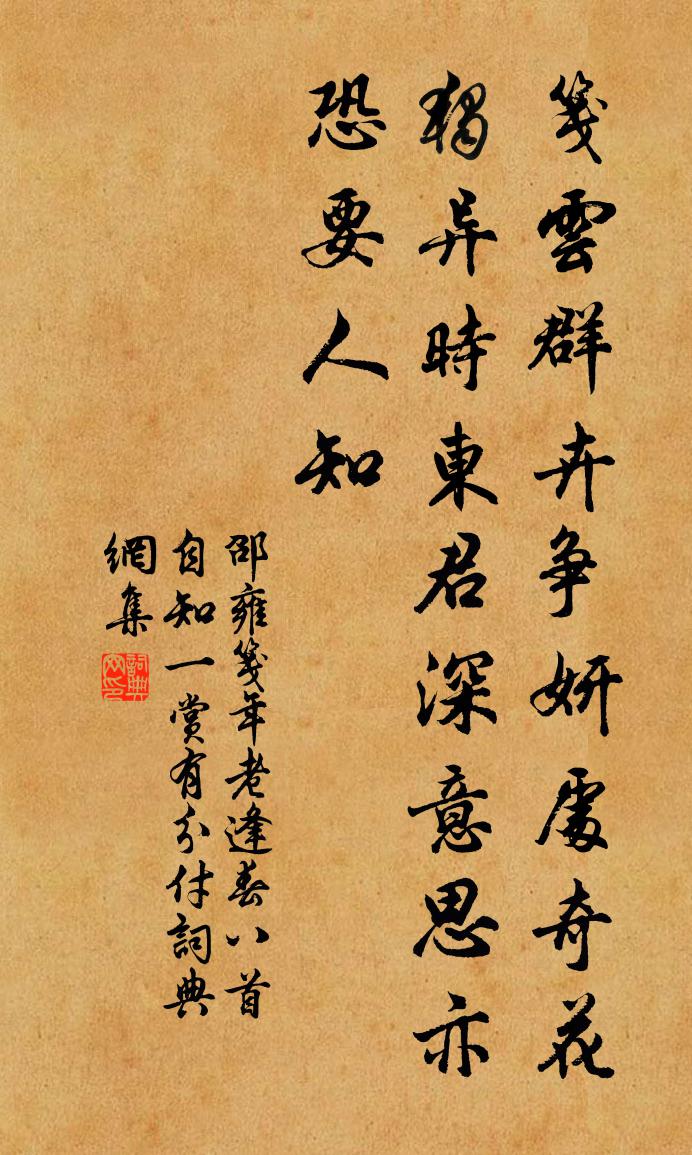 笺雲群卉争妍處奇花
獨异時東君深意思亦
恐要人知
邵雍笺年老逢春八首
自知一賞有分付詞典
網集
詞典网印